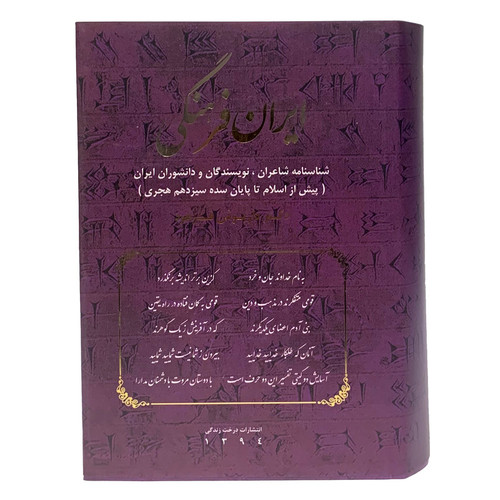 ایران فرهنگی
شناسنامه شاعران ، نویسندگان و دانشوران ایران
( پیش از اسلام تا پایان سده سیزدهم هجری )
به نام خداوند جان و خرد کزین برتر اندیشه برنگذرد
قومی متفکرند در مذهب و دین قومی به گمان فتاده در راه یقین
بنی آدم اعضای یکدیگرند که در آفرینش ز یک گوهرند
آنان که طلبکار خدایید خدایید بیرون ز شما نیست شمایید شمایید
آسایش دو گیتی تفسیر این دو حرف است با دوستان مروت با دشمنان مدارا
انتشارات درخت زندگی
۱۳۹٤